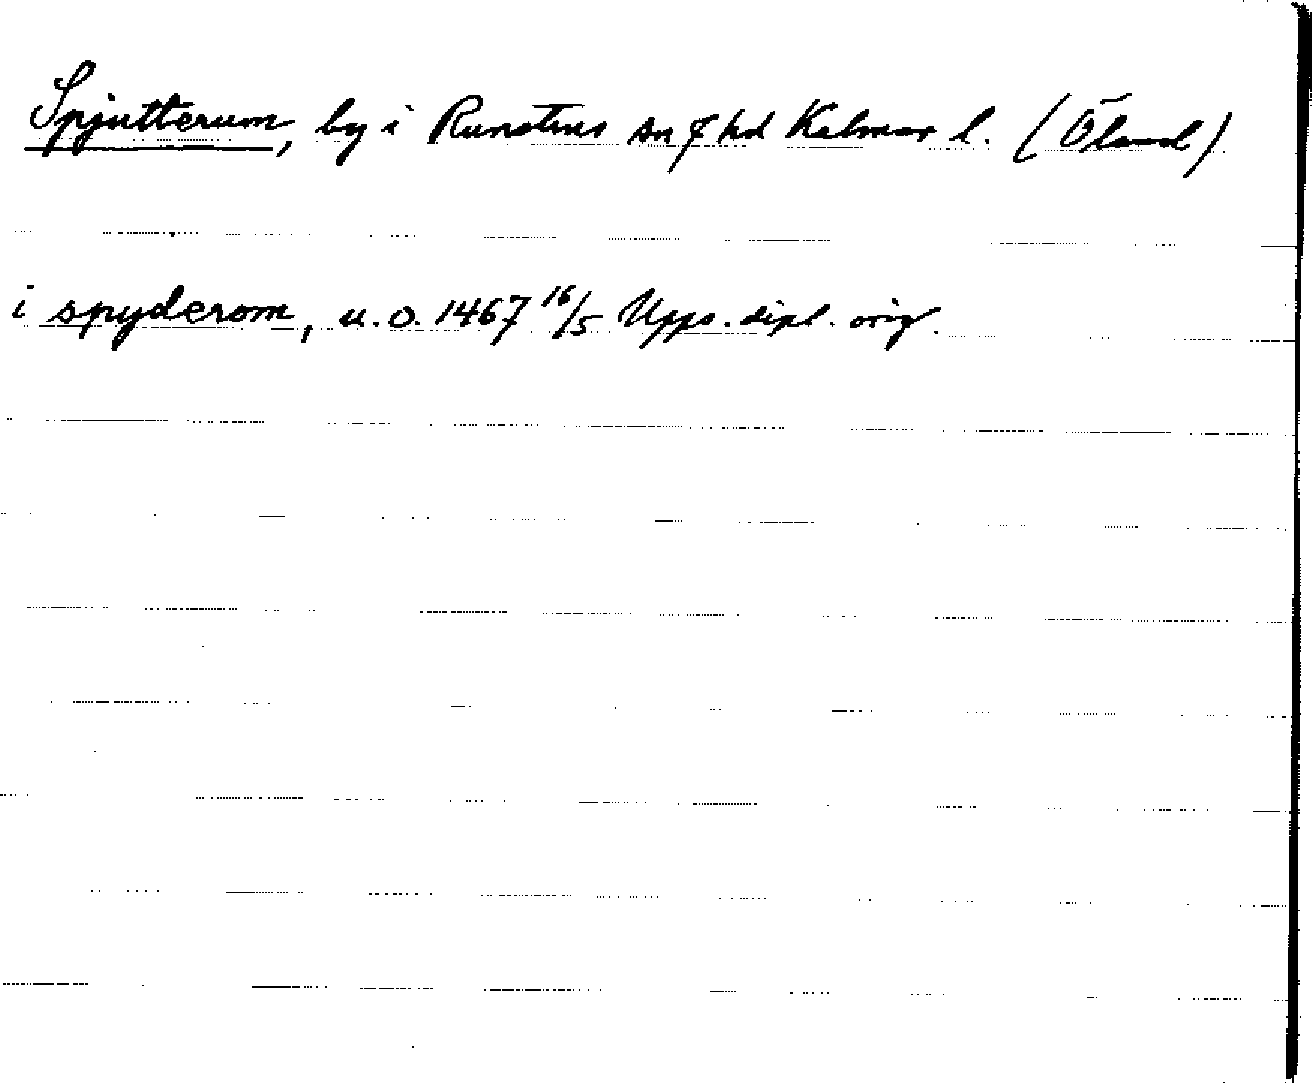 Spjutterum, by i Runstens sn o hd Kalmar l. (Öland)
i spyderom, u.o. 1467 16/5 Upps. dipl. orig.